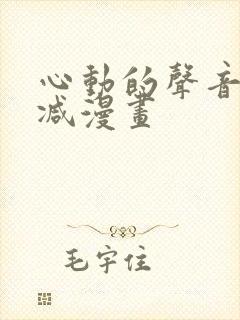 心動的聲音
减漫畫
毛宇住